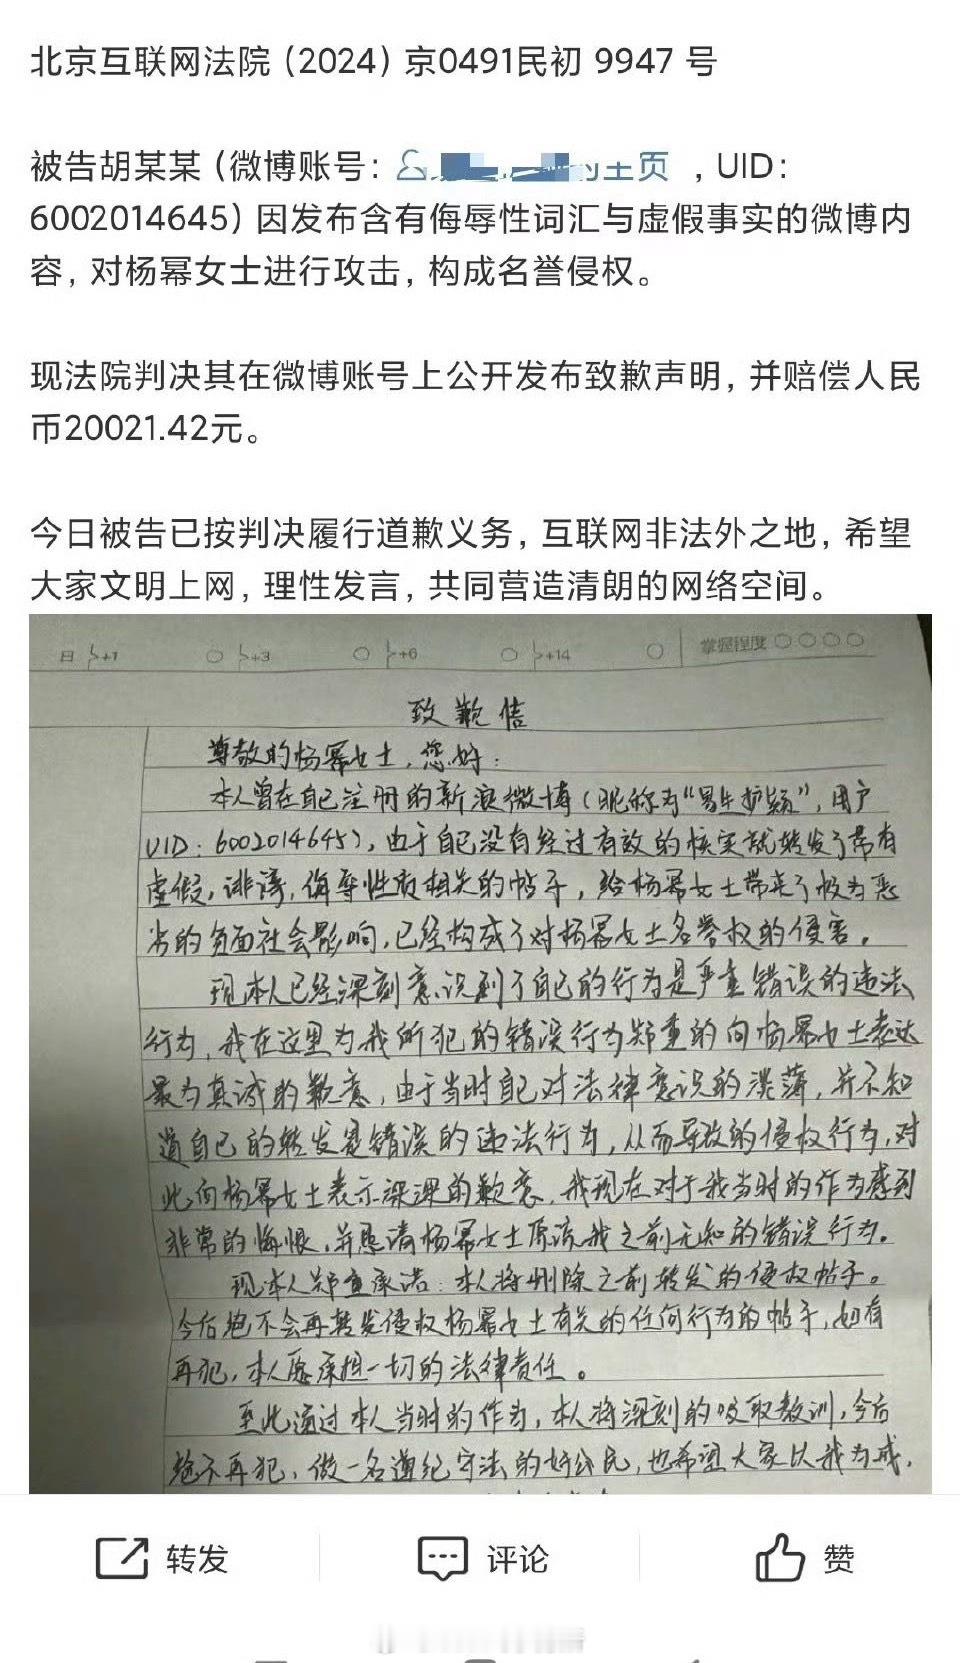 北京互联网法院（2024）京0491民初 9947 号
被告胡某某（微博账号：主页 ，UID：
6002014645）因发布含有侮辱性词汇与虚假事实的微博内
容，对杨幂女士进行攻击，构成名誉侵权。
现法院判决其在微博账号上公开发布致歉声明，并赔偿人民
币20021.42元。
今日被告已按判决履行道歉义务，互联网非法外之地，希望
大家文明上网，理性发言，共同营造清朗的网络空间。
日 +1 +3 +6 +14 掌握程度
致歉信
尊敬的杨幂女士，您好：
本人曾在自己注册的新浪微博（昵称为“男生护颖”，用户
UID：6002014645），由于自己没有经过有效的核实就转发了带有
虚假，诽谤，侮辱性质相关的帖子，给杨幂女士带来了极为恶
劣的负面社会影响，已经构成了对杨幂女士名誉权的侵害。
现本人已经深刻意识到了自己的行为是严重错误的违法
行为，我在这里为我所犯的错误行为郑重的向杨幂女士表达
最为真诚的歉意，由于当时自己对法律意识的淡薄，并不知
道自己的转发是错误的违法行为，从而导致的侵权行为，对
此向杨幂女士表示深深的歉意，我现在对于我当时的作为感到
非常的悔恨，并恳请杨幂女士原谅我之前无知的错误行为。
现本人郑重承诺：本人将删除之前转发的侵权帖子。
今后绝不会再转发侵权杨幂女士有关的任何行为的帖子，如有
再犯，本人愿承担一切的法律责任。
至此通过本人当时的作为，本人将深刻的吸取教训，今后
绝不再犯，做一名遵纪守法的好公民，也希望大家以我为戒，
转发 评论 赞